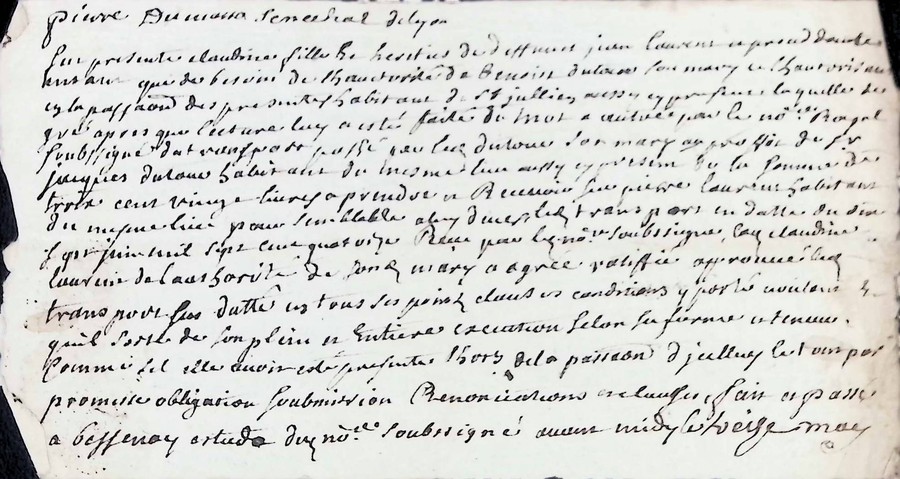 pierre Dumas Senechal de lyon
fut presente claudine fille & heritiere de deffunct jean laurent
entant que de besoin de l'hauctorité de benoist dulou son mary et l'hauthorisant
en la passaon des presentes habitant de St jullien aussy cy present laquelle de
gré apres que lecture luy a esté faite du mot a autre par le nore
soubsigné du transport passé par led dulou son mary au proffit de sr
jacques dulou habitant du mesme lieu aussy cy present de la somme de
trois cent vingt livres a prendre et Recevoir sur pierre laurent habitant
du mesme lieu pour semblable a luy dues led transport en datte du
sept juin mil sept cent quatorze Receu par led nore soubssigné, lad claudine
laurent de l'authorité de sond mary a agréé ratiffié approuvé led
transport sus datté en tous ses points clauses et conditions y porté voulant
quil sorte de son plein et Entiere execution selon sa forme et teneur.
Comme sy elle avoit esté presente lhors de la passaon d'jcelluy le tout par
promesse obligation soubmission Renonciations et clauses, fait et passé
a bessenay estude dud nore soubssigné avant midy le treize may